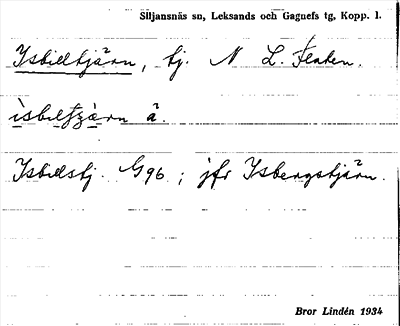 Siljansnäs sn, Leksands och Gagnefs tg, Kopp. l.
Isbilltjärn, tj. N L. Flaten.
ìsbiltjä̀rn å.
Isbillstj. G96; jfr Isbergstjärn.
Bror Lindén 1934